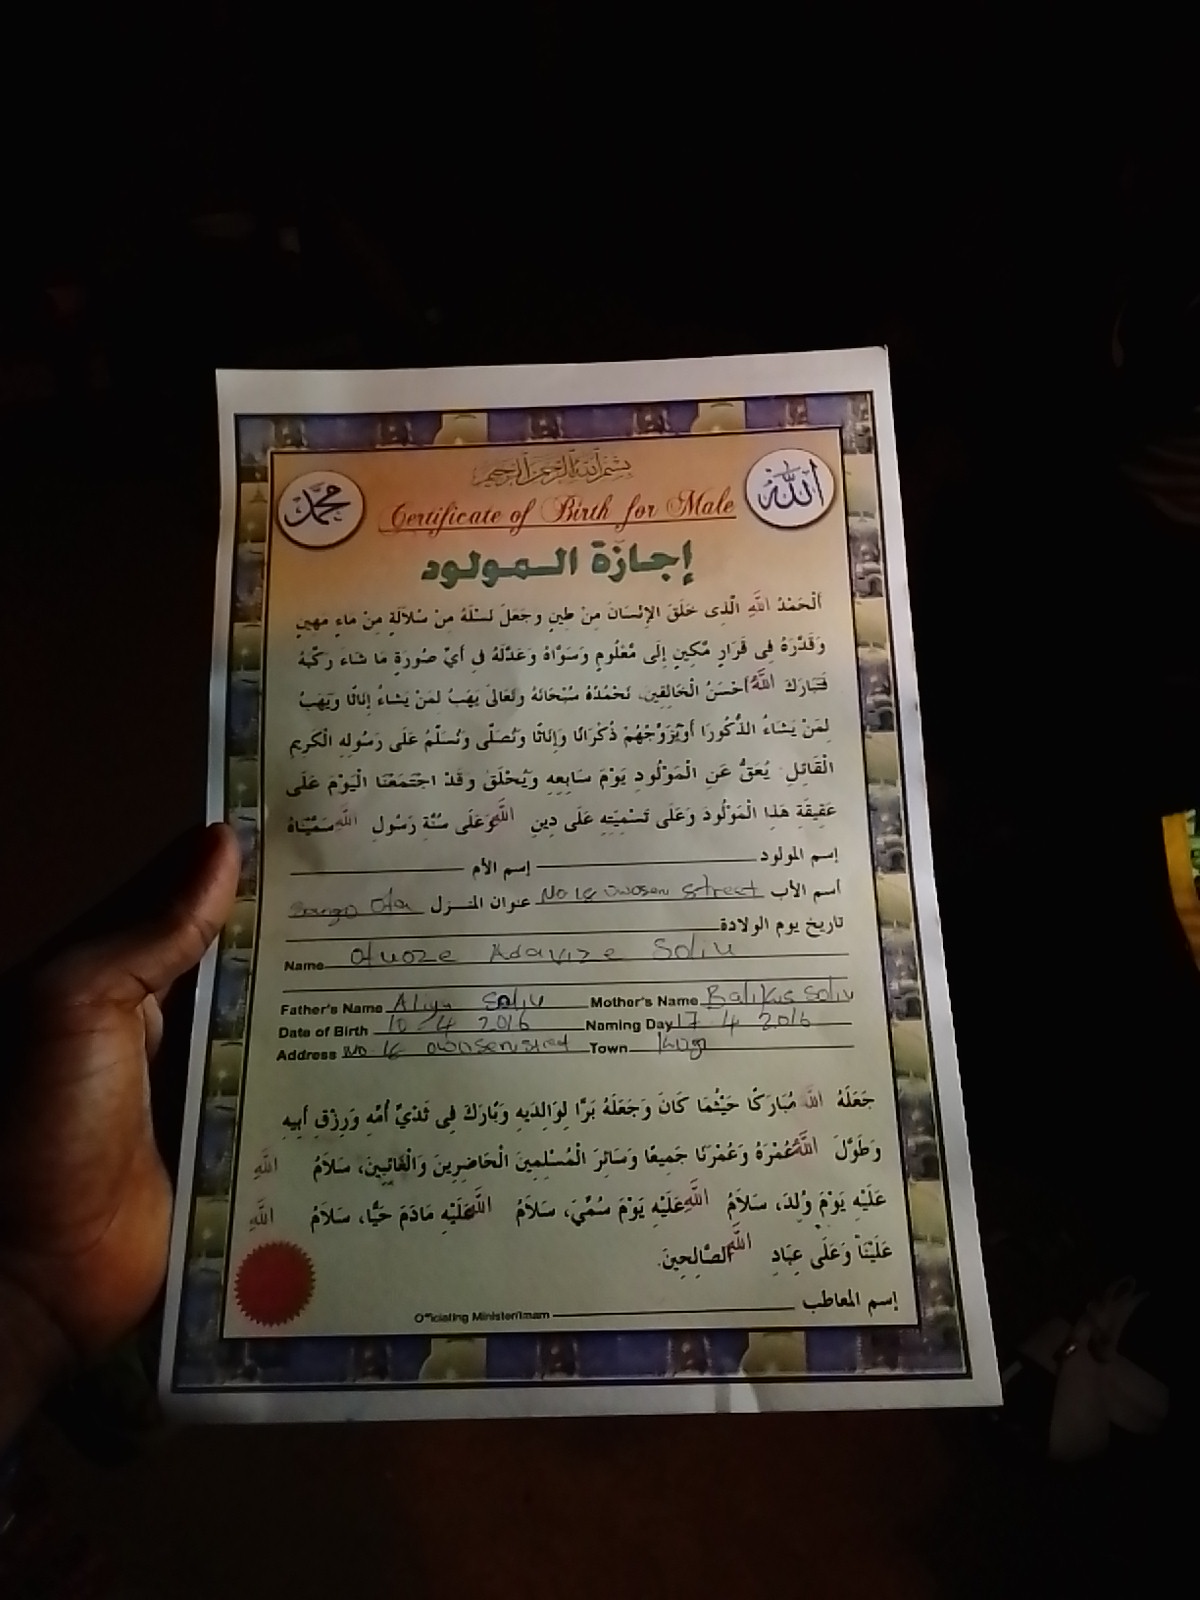 بسم الله الرحمن الرحيم
محمد
الله
Certificate of Birth for Male
إجازة المولود
اَلْحَمْدُ اللّٰهِ الَّذِى خَلَقَ الإِنْسَانَ مِنْ طِينٍ وجَعَلَ نَسْلَهُ مِنْ سُلاَلَةٍ مِنْ مَاءٍ مَهِينٍ
وَقَدَّرَهُ فِى قَرَارٍ مَّكِينٍ إِلَى مَّعْلُومٍ وَسَوَّاهُ وَعَدَّلَهُ فِى أَيِّ صُورَةٍ مَا شَاءَ رَكَّبَهُ
فَتَبَارَكَ اللّٰهُ أَحْسَنُ الْخَالِقِين، نَحْمُدُهُ سُبْحَانَهُ وتَعَالىَ يَهَبُ لمَنْ يَشَاءُ إِنَاثًا ويَهَبُ
لِمَنْ يَشَاءُ الذُّكُورَا أَوْيُزَوِّجُهُمْ ذُكْرَانًا وَإِنَاثًا وَنُصَلّى وَنُسَلِّمُ عَلَى رَسُولِهِ الْكَرِيمِ
الْقَائِلِ يُعَقُّ عَنِ الْمَوْلُودِ يَوْمَ سَابِعِهِ وَيُحْلَقَ وَقَدْ اجْتَمَعْنَا الْيَوْمَ عَلَى
عَقِيقَةِ هَذَا الْمَوْلُودَ وَعَلَى تَسْمِيَتِهِ عَلَى دِينِ اللّٰهِ وَعَلَى سُنَّةِ رَسُولِ اللّٰهِ سَمَّيْنَاهُ
إسم المولود إسم الأم
أسم الأب No 16 owoseni street عنوان المنزل Sango Ota
تاريخ يوم الولادة
Name Adavize Soliu
Father's Name Aliyu Soliu Mother's Name Balikis Soliu
Date of Birth 10 - 4 2016 Naming Day 17 4 2016
Address No 16 Town Kogi
جَعَلَهُ اللّٰهُ مُبَارَكًا حَيْثُمَا كَانَ وَجَعَلَهُ بَرًّا لِوَالِدَيهِ وَبَارَكَ فِى ثَدْيِّ أُمِّهِ وَرِزْقِ أَبِيهِ
وَطَوَّلَ اللّٰهُ عُمْرَهُ وَعُمْرَنَا جَمِيعًا وَسَائِرَ الْمُسْلِمِينَ الْحَاضِرِينَ وَالْغَائِبِينَ، سَلاَمُ اللّٰهِ
عَلَيْهِ يَوْمَ وُلِدَ، سَلاَمُ اللّٰهِ عَلَيْهِ يَوْمَ سُمِّيَ، سَلاَمُ اللّٰهِ عَلَيْهِ مَادَمَ حَيًّا، سَلاَمُ اللّٰهِ
عَلَيْنَا وَعَلَى عِبَادِ اللّٰهِ الصَّالِحِينَ.
إسم المعاطب Officiating Minister/Imam